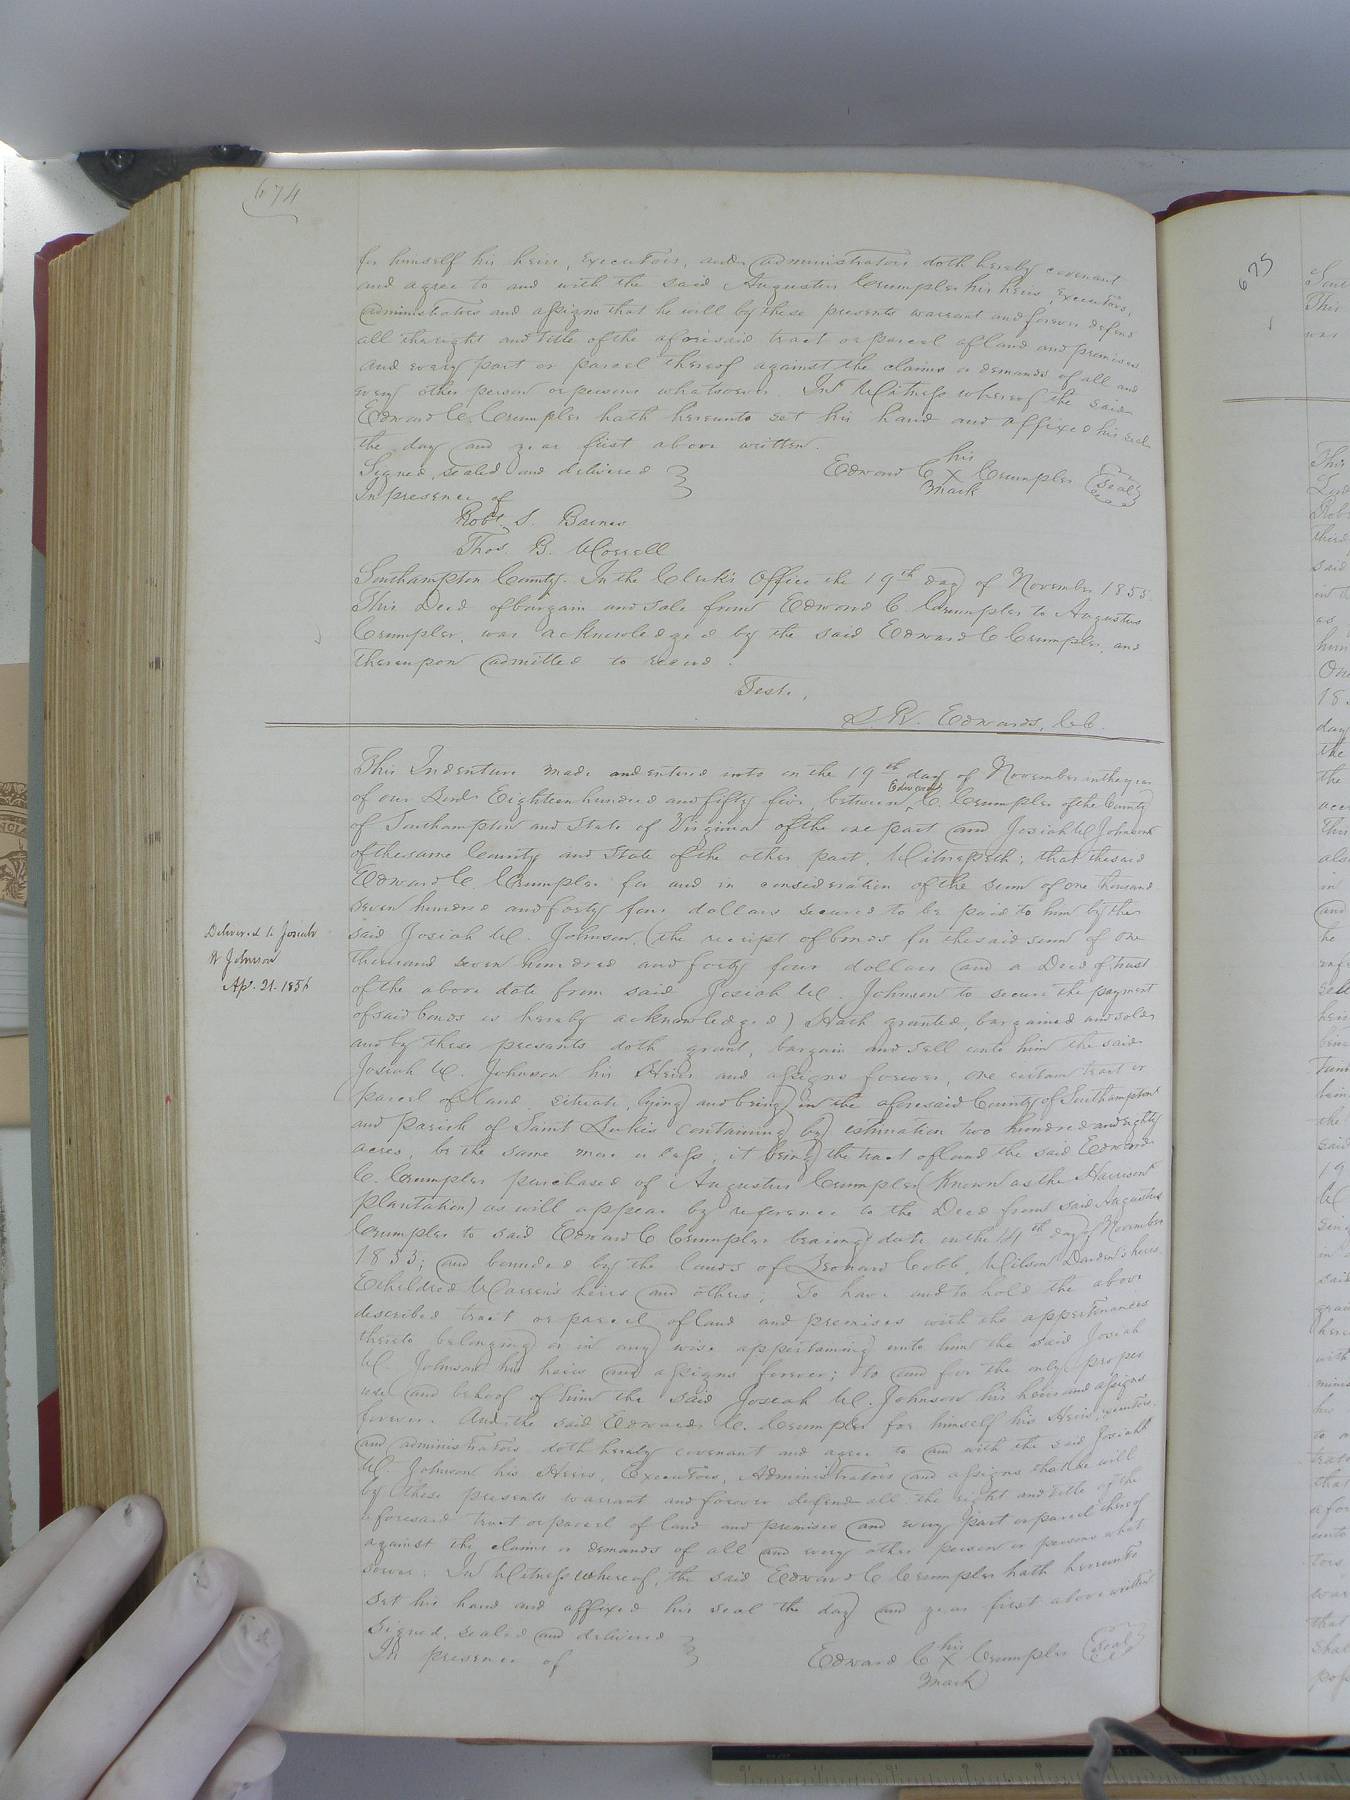 674
for himself his heirs, executors, and administrators doth hereby covenant
and agree to and with the said Augustus Crumpler his heirs, executors,
administrators and assigns that he will by these presents warrant and forever defend
all the right and title of the aforesaid tract or parcel of land and premises
and every part or parcel thereof against the claims or demands of all and
every other person or persons whatsoever. In Witness whereof the said
Edward C. Crumpler hath hereunto set his hand and affixed his seal
the day and year first above written.
Signed, sealed and delivered
In presence of
Edward C his X mark Crumpler (Seal)
Robt. S. Barnes
Thos. B. Worrell
Southampton County. In the Clerk's Office the 19th day of November 1855.
This Deed of bargain and sale from Edward C. Crumpler to Augustus
Crumpler, was acknowledged by the said Edward C Crumpler, and
thereupon admitted to record.
Teste,
L. R. Edwards, C.C.
This Indenture made and entered into on the 19th day of November in the year
of our Lord Eighteen hundred and fifty five, between Edward C. Crumpler of the County
of Southampton and State of Virginia of the one part and Josiah W Johnson
of the same County and State of the other part, Witnesseth; that the said
Edward C. Crumpler for and in consideration of the sum of one thousand
seven hundred and forty four dollars secured to be paid to him by the
said Josiah W. Johnson, (the receipt of bonds for the said sum of one
thousand seven hundred and forty four dollars and a Deed of trust
of the above date from said Josiah W. Johnson to secure the payment
of said bonds is hereby acknowledged) Hath granted, bargained and sold
and by these presents doth grant, bargain and sell unto him the said
Josiah W. Johnson his Heirs and assigns forever, one certain tract or
parcel of land situate, lying and being in the aforesaid County of Southampton
and parish of Saint Luke's containing by estimation two hundred and eighty
acres, be the same more or less, it being the tract of land the said Edward
C. Crumpler purchased of Augustus Crumpler (Known as the Harrison
plantation) as will appear by reference to the Deed from said Augustus
Crumpler to said Edward C Crumpler bearing date on the 4th day of November
1853; and bounded by the lands of Leonard Cobb, Wilson Darden's heirs,
Ethildred Warren's heirs and others; To have and to hold the above
described tract or parcel of land and premises with the appurtenances
thereto belonging or in any wise appertaining unto him the said Josiah
W. Johnson his heirs and assigns forever; to and for the only proper
use and behoof of him the said Josiah W. Johnson his heirs and assigns
forever. And the said Edward C. Crumpler for himself his Heirs, executors
and administrators doth hereby covenant and agree to and with the said Josiah
W. Johnson his Heirs, Executors, Administrators and assigns that he will
by these presents warrant and forever defend all the right and title of the
aforesaid tract or parcel of land and premises and every part or parcel thereof
against the claims or demands of all and every other person or persons what
soever: In Witness whereof, the said Edward C Crumpler hath hereunto
set his hand and affixed his seal the day and year first above written
Signed, sealed and delivered
In presence of
Edward C his X mark Crumpler (Seal)
Delivered to Josiah
W Johnson
Ap. 21. 1856
675